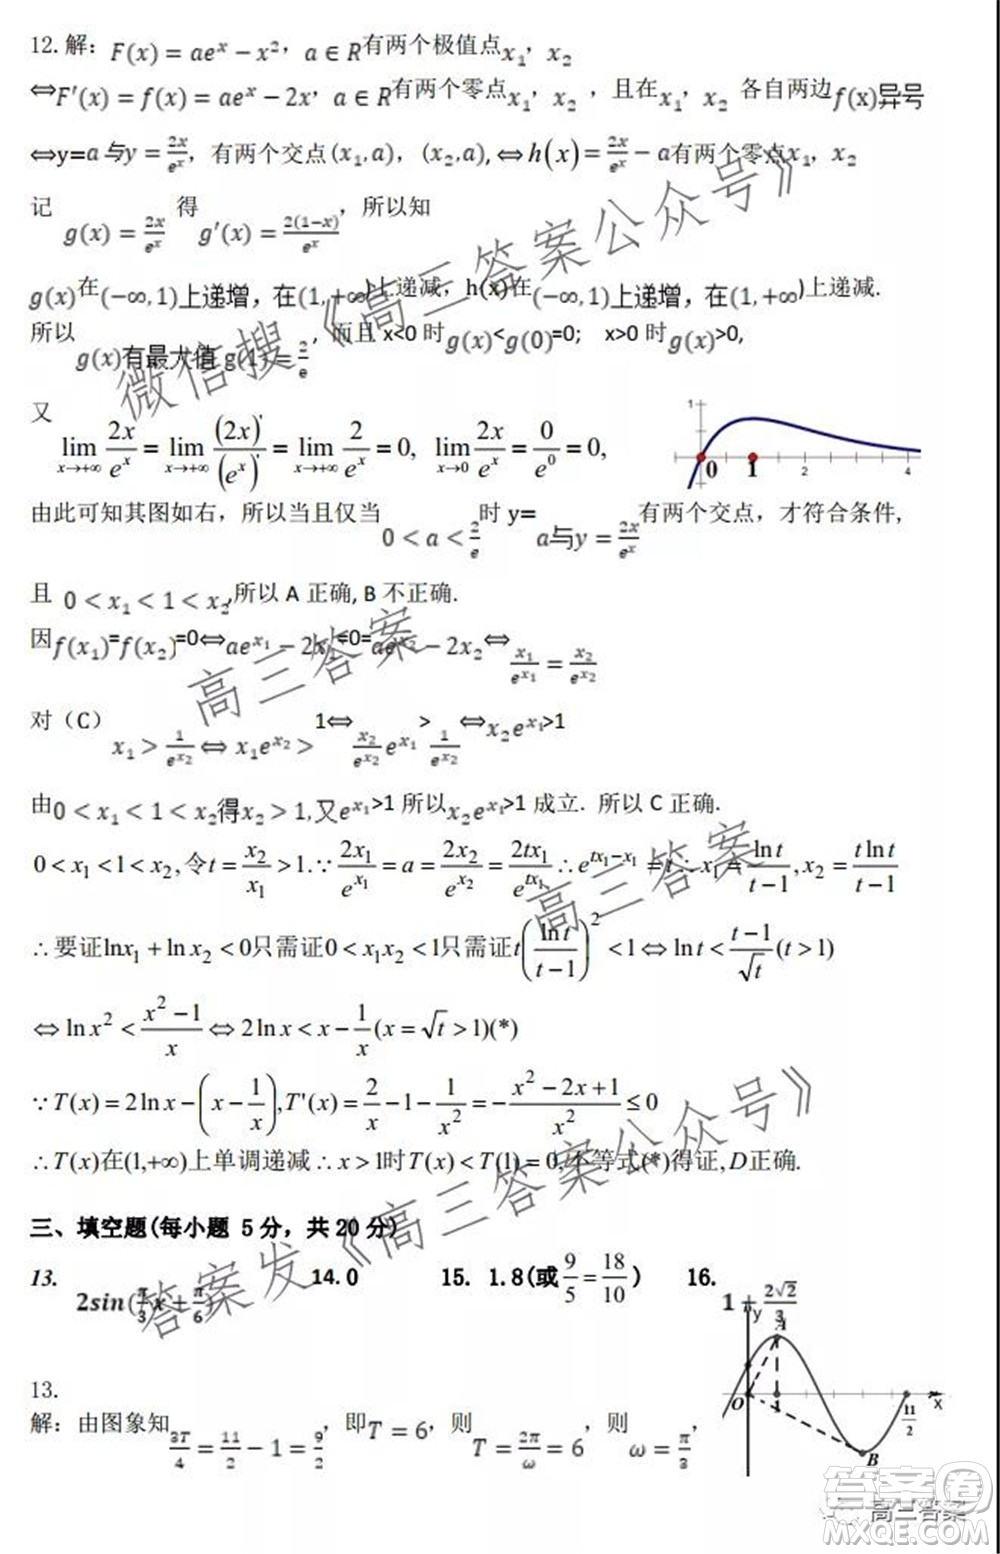 12.解：F(x) = ae^x − x²，a ∈ R有两个极值点x₁，x₂
⇔F′(x) = f(x) = ae^x − 2x，a ∈ R有两个零点x₁，x₂，且在x₁，x₂ 各自两边f(x)异号
⇔y=a 与y = 2x/e^x，有两个交点(x₁,a)，(x₂,a),⇔h(x) = 2x/e^x − a有两个零点x₁，x₂
记 g(x) = 2x/e^x 得 g′(x) = 2(1−x)/e^x，所以知
g(x)在(−∞,1)上递增，在(1,+∞)上递减，h(x)在(−∞,1)上递增，在(1,+∞)上递减.
所以 g(x)有最大值 g(1) = 2/e，而且 x<0 时g(x)<g(0)=0; x>0 时g(x)>0,
又 lim x→+∞ 2x/e^x = lim x→+∞ (2x)′/(e^x)′ = lim x→+∞ 2/e^x = 0, lim x→0 2x/e^x = 0/e⁰ = 0,
1 0 1 2 4
由此可知其图如右，所以当且仅当 0 < a < 2/e 时 y= a与y = 2x/e^x 有两个交点，才符合条件,
且 0 < x₁ < 1 < x₂,所以 A 正确, B 不正确.
因f(x₁)=f(x₂)=0⇔ae^x₁ − 2x₁=0=ae^x₂ − 2x₂⇔ x₁/e^x₁ = x₂/e^x₂
对（C）x₁ > 1/e^x₂ ⇔ x₁e^x₂ > 1⇔ x₂/e^x₂ e^x₁ > 1/e^x₂ ⇔x₂e^x₁>1
由0 < x₁ < 1 < x₂得x₂ > 1,又e^x₁>1 所以x₂e^x₁>1 成立. 所以 C 正确.
0 < x₁ < 1 < x₂,令t = x₂/x₁ > 1.∵ 2x₁/e^x₁ = a = 2x₂/e^x₂ = 2tx₁/e^tx₁ ∴ e^(tx₁−x₁) = t∴ x₁ = ln t/(t−1), x₂ = t ln t/(t−1)
∴要证ln x₁ + ln x₂ < 0只需证0 < x₁x₂ < 1只需证t(ln t/(t−1))² < 1 ⇔ ln t < (t−1)/√t (t > 1)
⇔ ln x² < (x²−1)/x ⇔ 2ln x < x − 1/x (x = √t > 1)(*)
∵T(x) = 2ln x − (x − 1/x), T'(x) = 2/x − 1 − 1/x² = −(x² − 2x + 1)/x² ≤ 0
∴T(x)在(1,+∞)上单调递减∴ x > 1时T(x) < T(1) = 0,不等式(*)得证, D正确.
三、填空题(每小题 5分，共20分)
13. 2sin(π/3 x + π/6) 14.0 15. 1.8(或 9/5 = 18/10 ) 16. 1 + 2√2/3
13.
解：由图象知 3T/4 = 11/2 − 1 = 9/2，即T = 6，则 T = 2π/ω = 6，则 ω = π/3，
y A O 1 11/2 x B
微信搜《高三答案公众号》
高三答案
高三答案
答案发《高三答案公众号》
高三答案
答案圈
MXQE.COM